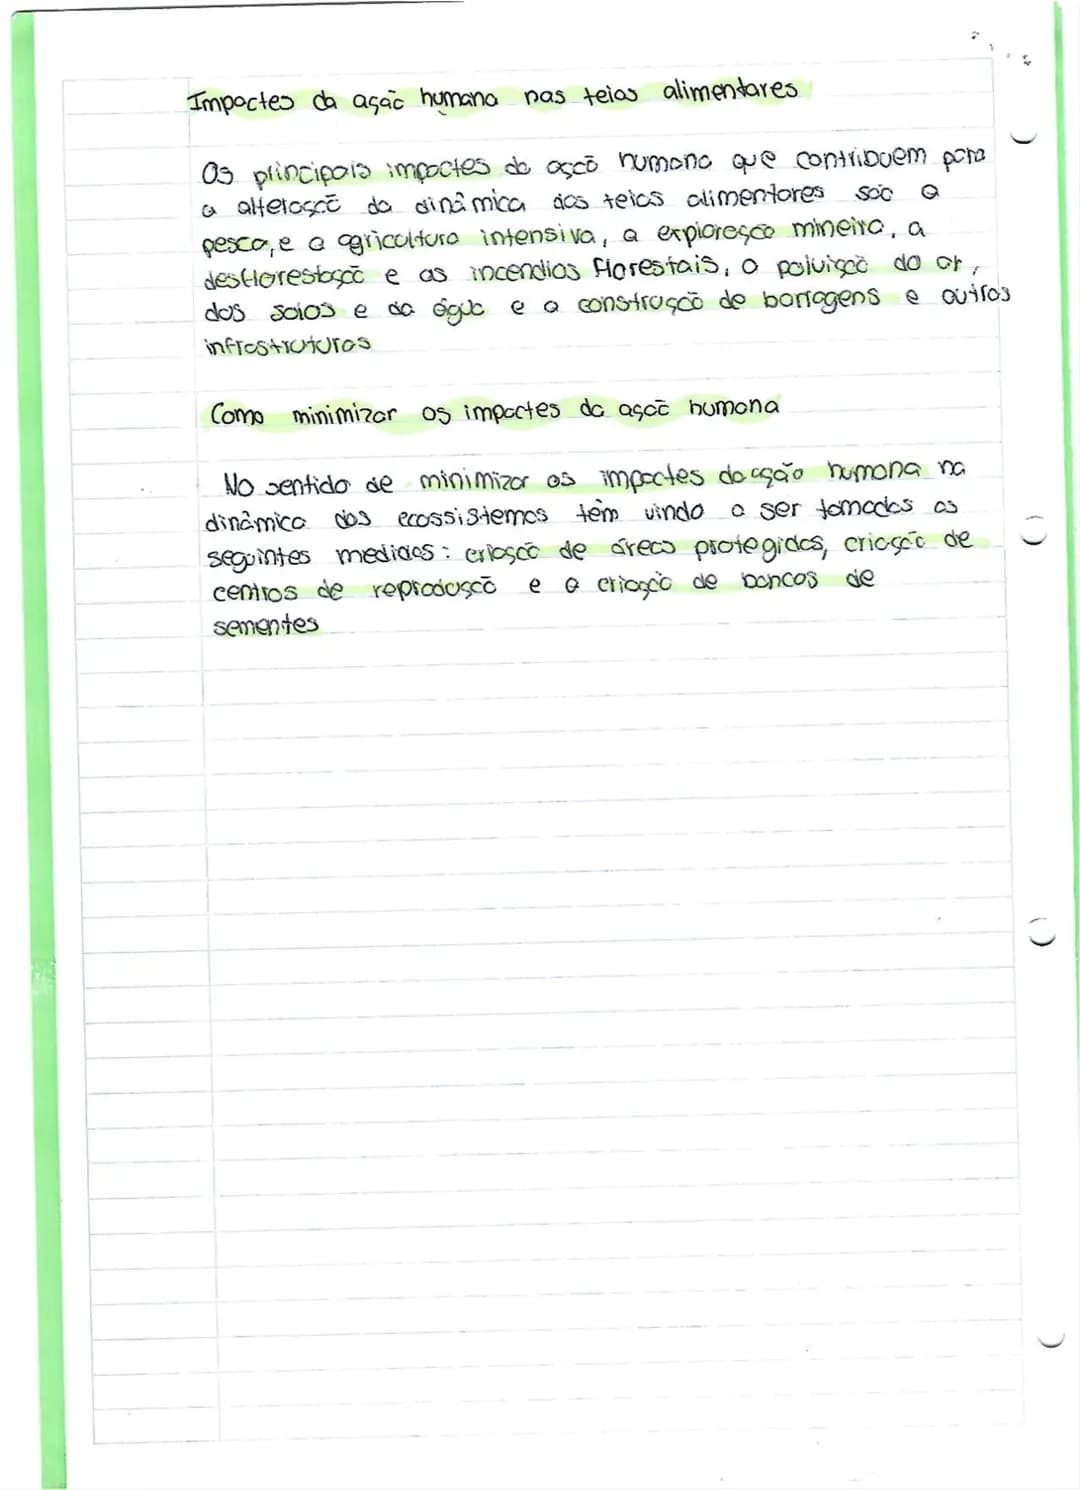 Impactes da ação humana nas teias alimentares
Os principais impactes da ação humana que contribuem para
a alteração da dinâmica das teias alimentares são a
pesca, e a agricultura intensiva, a exploração mineira, a
desflorestação e as incendios florestais, o poluição do ar,
dos solos e da água e a construção de barragens e outras
infrastruturas
Como minimizar os impactes da ação humana
No sentido de minimizar os impactes da ação humana na
dinâmica dos ecossistemas têm vindo a ser tomadas as
seguintes medidas: criação de áreas protegidas, criação de
centros de reprodução e a criação de bancos de
sementes